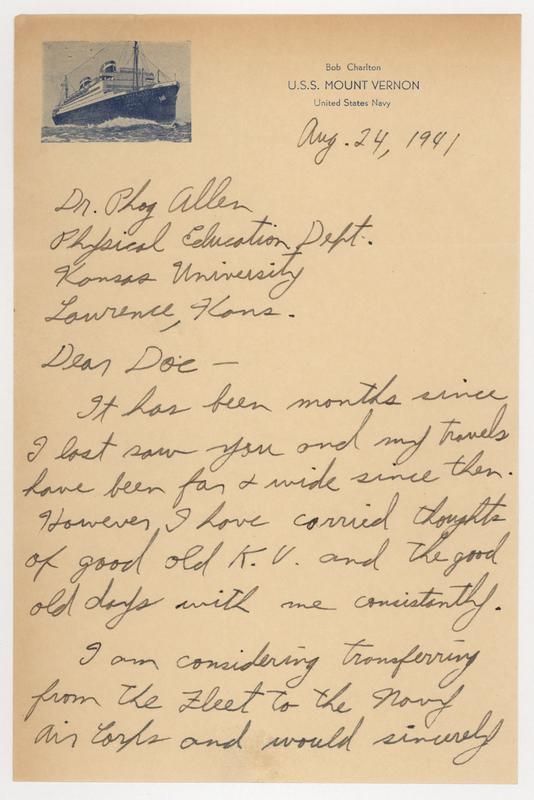 Bob Charlton
U.S.S. MOUNT VERNON
United States Navy
Aug. 24, 1941
Dr. Phog Allen
Physical Education Dept.
Kansas University
Lawrence, Kans.
Dear Doc —
It has been months since
I last saw you and my travels
have been far & wide since then.
However, I have carried thoughts
of good old K. U. and the good
old days with me consistantly.
I am considering transferring
from the Fleet to the Navy
Air Corps and would sincerely